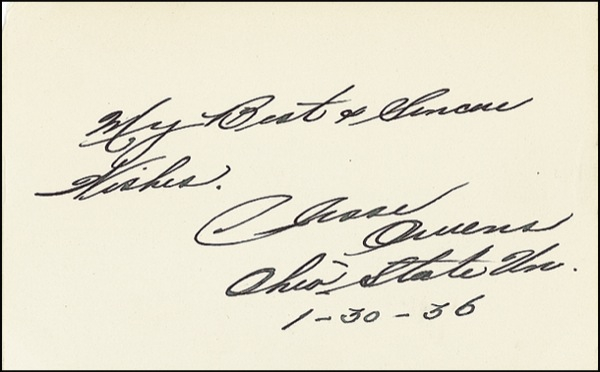 My Best & Sincere
Wishes.
Jesse
Owens
Ohio State Un.
1-30-36